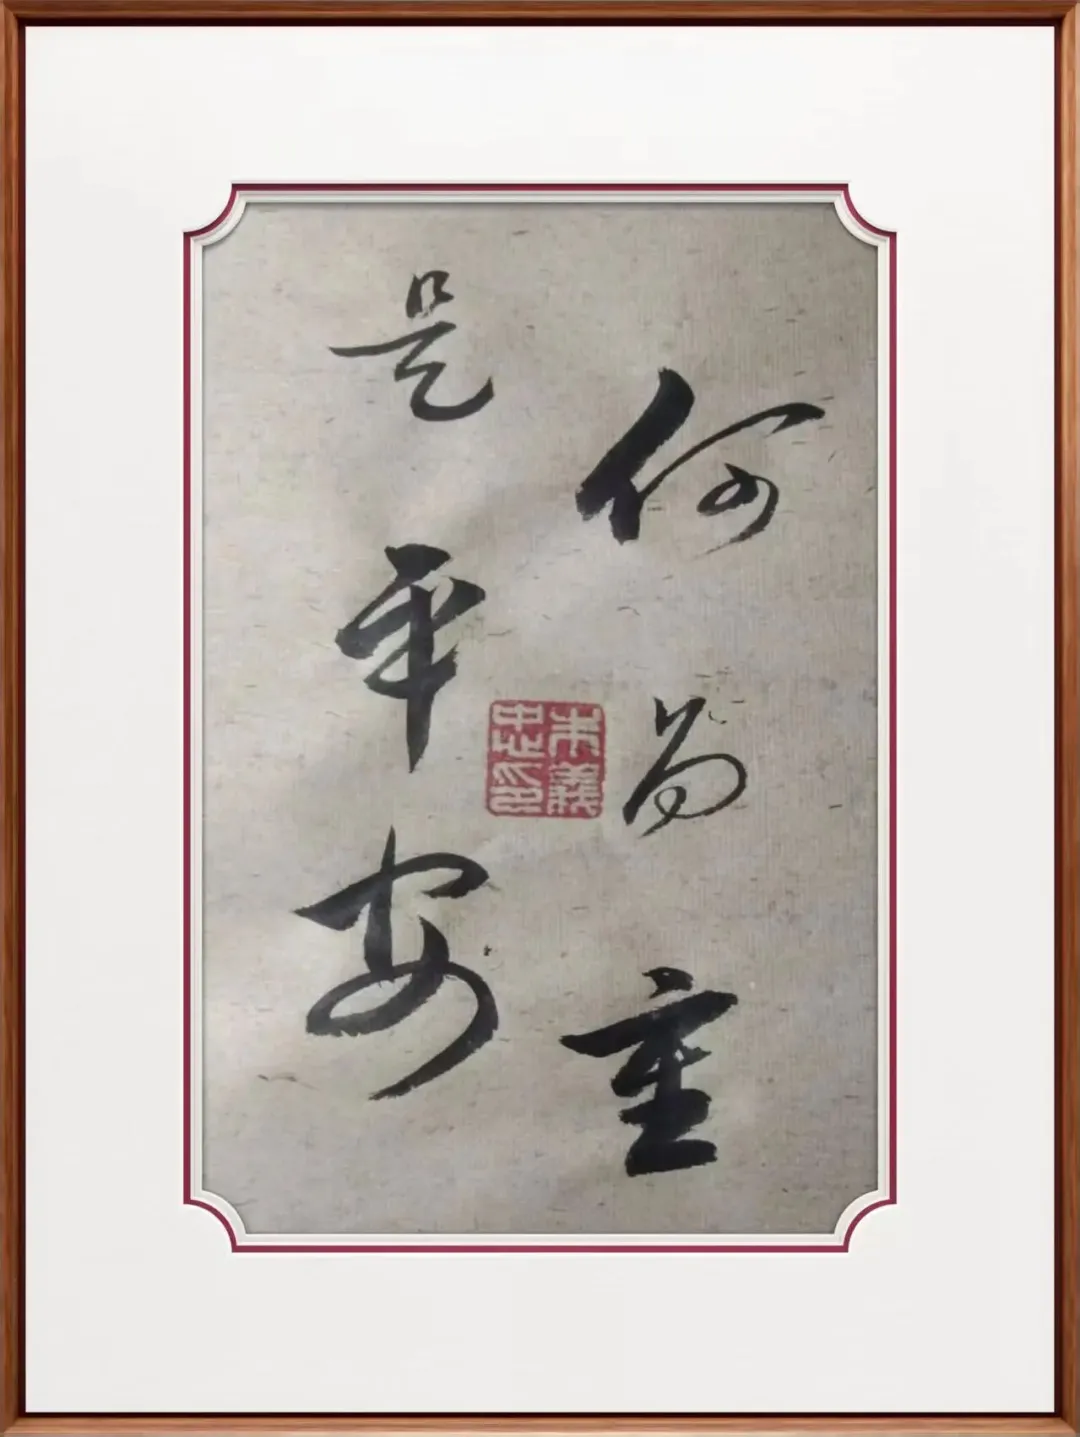 何為重
是平安
朱義
忠印